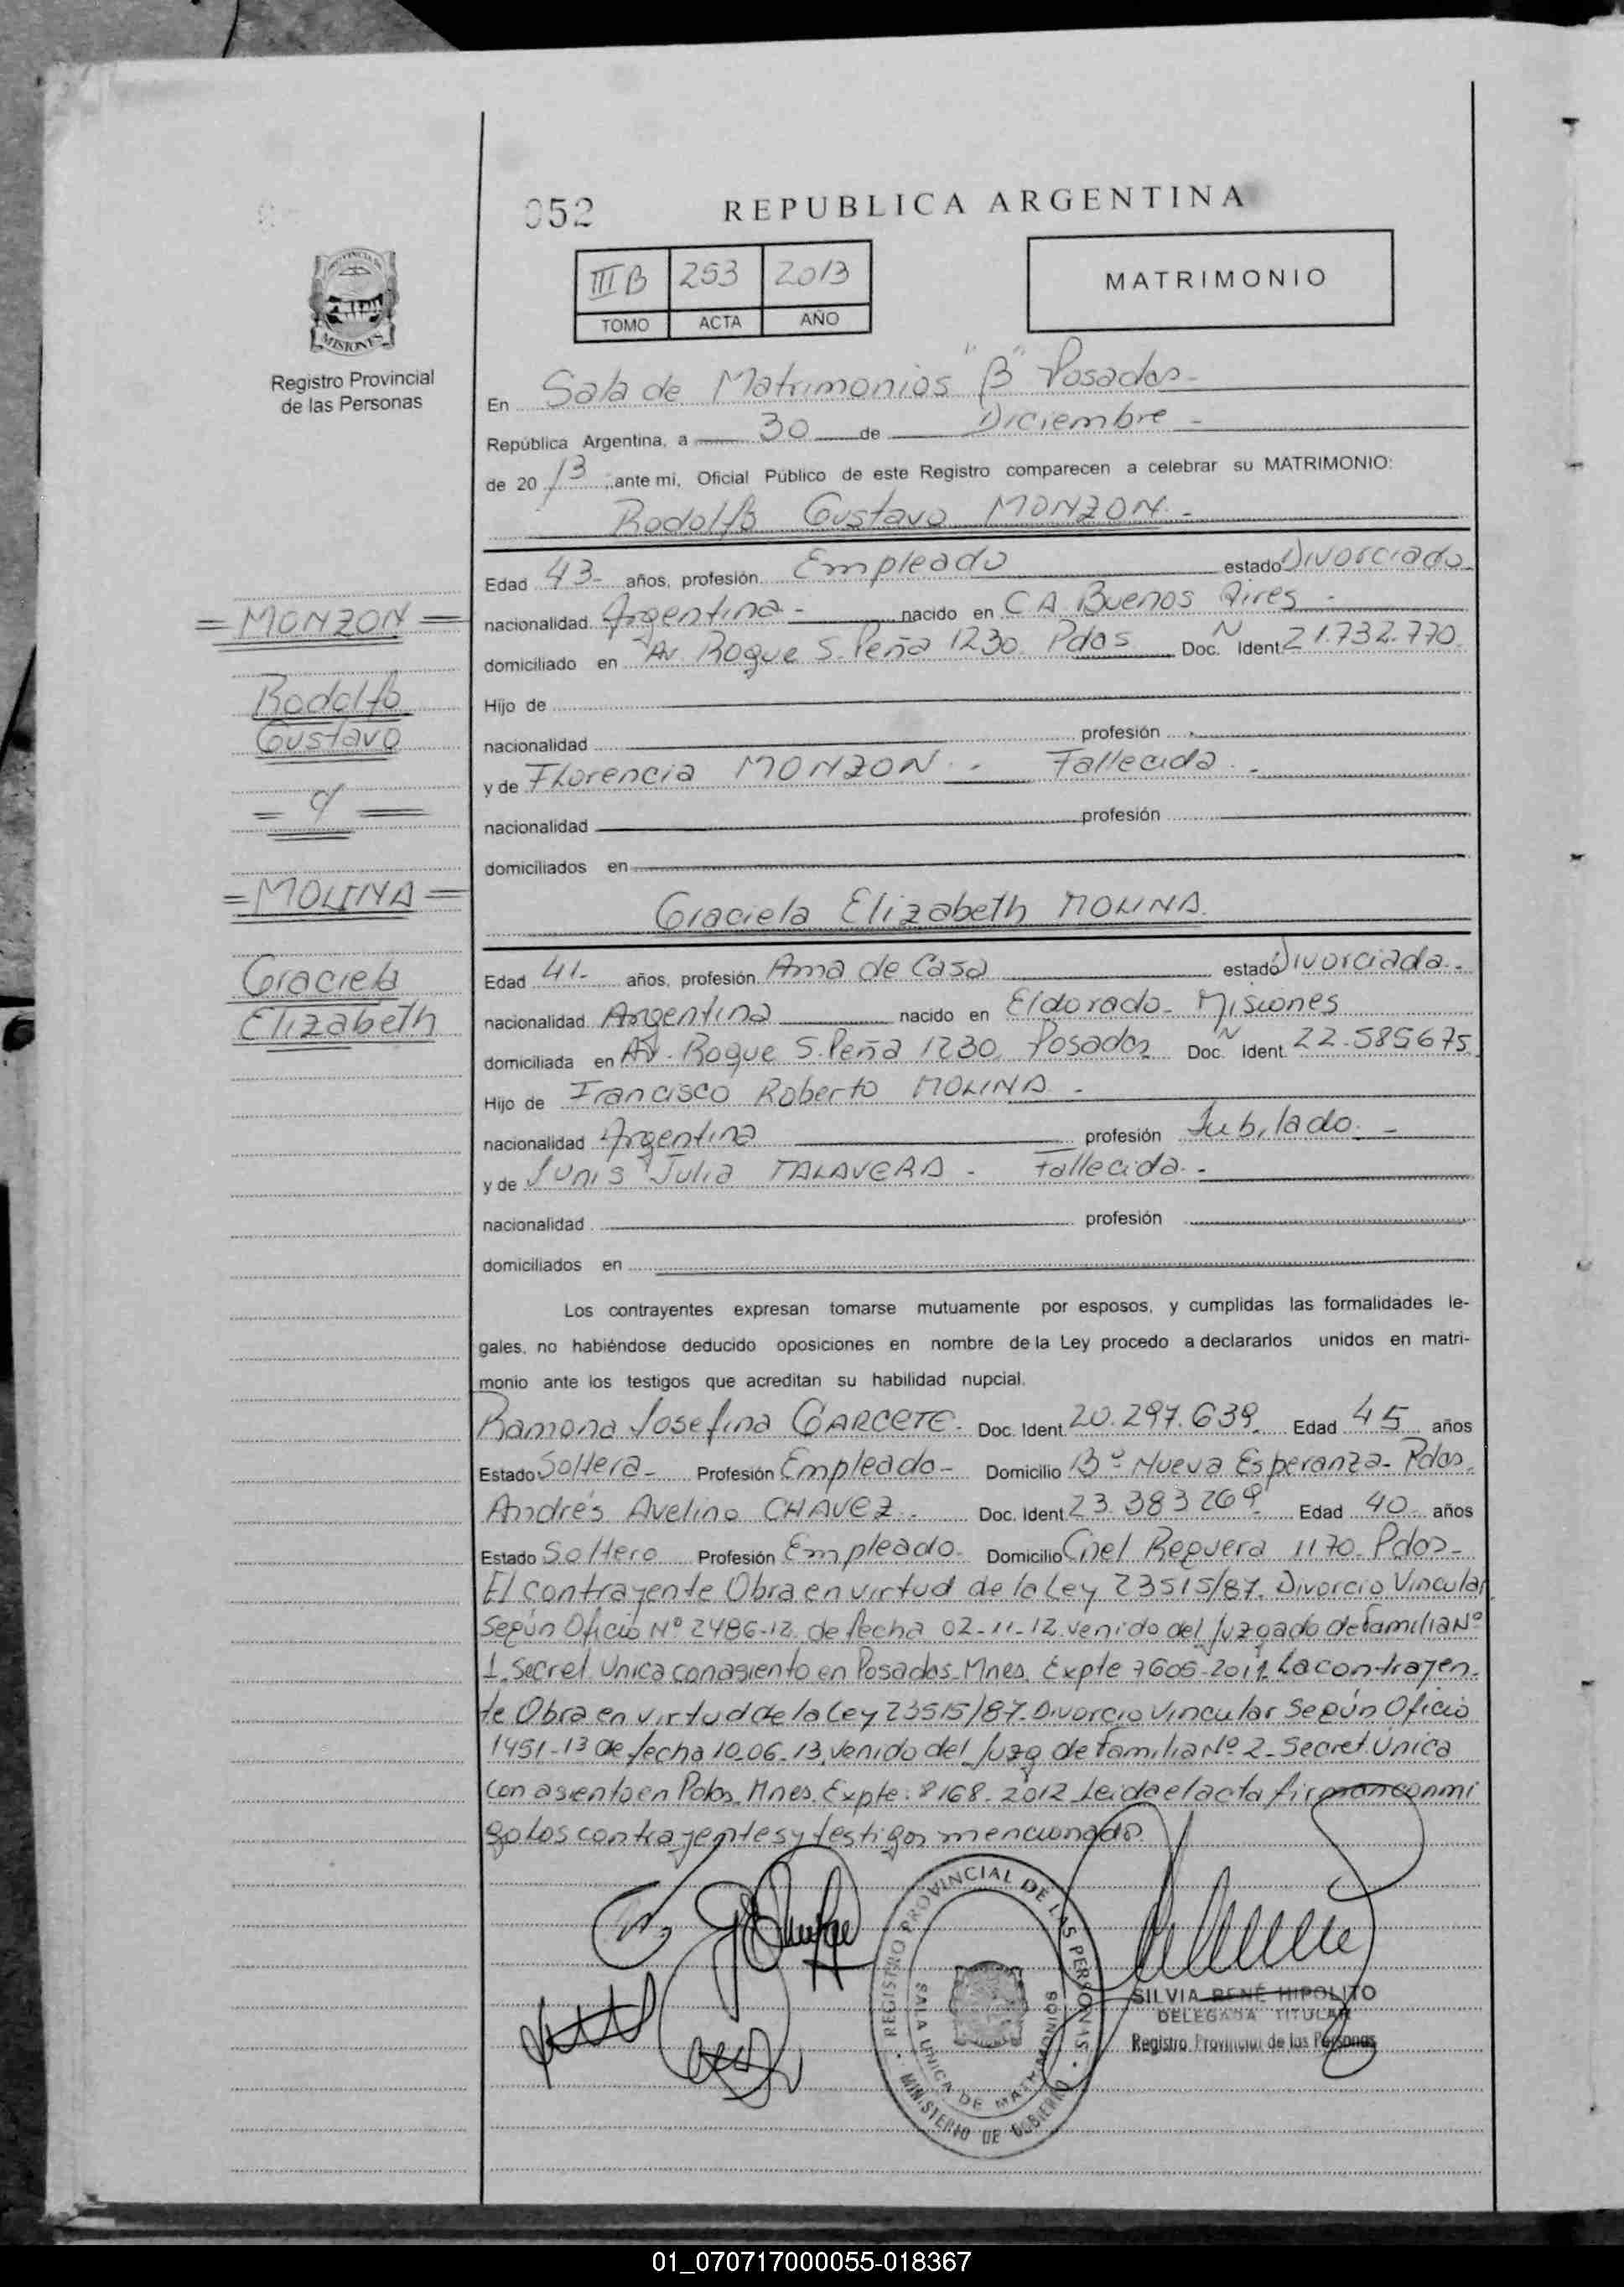 052
REPUBLICA ARGENTINA
III B 253 2013
TOMO ACTA AÑO
MATRIMONIO
MISIONES
Registro Provincial
de las Personas
En Sala de Matrimonios "B" Posadas-
República Argentina, a 30 de Diciembre -
de 2013 ante mi, Oficial Público de este Registro comparecen a celebrar su MATRIMONIO:
Rodolfo Gustavo MONZON.-
Edad 43- años, profesión Empleado estado Divorciado
nacionalidad Argentina - nacido en C A Buenos Aires -
domiciliado en Av. Roque S. Peña 1230. Pdas Doc. N Ident 21.732.770
Hijo de
nacionalidad profesión
y de Florencia MONZON - Fallecida. -
nacionalidad profesión
domiciliados en
= MONZON =
Rodolfo
Gustavo
= c/ =
= MOLINA =
Graciela
Elizabeth
Graciela Elizabeth MOLINA.
Edad 41- años, profesión Ama de Casa estado Divorciada.-
nacionalidad Argentina nacido en Eldorado- Misiones
domiciliada en Av. Roque S. Peña 1230. Posadas Doc. N Ident. 22.585675
Hijo de Francisco Roberto MOLINA -
nacionalidad Argentina profesión Jubilado. -
y de Julia TALAVERA - Fallecida.-
nacionalidad profesión
domiciliados en
Los contrayentes expresan tomarse mutuamente por esposos, y cumplidas las formalidades le-
gales, no habiéndose deducido oposiciones en nombre de la Ley procedo a declararlos unidos en matri-
monio ante los testigos que acreditan su habilidad nupcial.
Ramona Josefina GARCETE- Doc. Ident. 20.297.639 Edad 45 años
Estado Soltera- Profesión Empleado- Domicilio Bº Nueva Esperanza- Pdas.
Andrés Avelino CHAVEZ- Doc. Ident 23.383269 Edad 40 años
Estado Soltero Profesión Empleado- Domicilio Cnel Reguera 1170- Pdas-
El contrayente Obra en virtud de la Ley 23515/87. Divorcio Vincular
Según Oficio Nº 2486-12. de fecha 02-11-12 venido del Juzgado de Familia Nº
1. Secret. Unica con asiento en Posadas-Mnes. Expte 7605-2011. La contrayen-
te Obra en virtud de la Ley 23515/87. Divorcio Vincular Según Oficio
1451-13 de fecha 10.06.13, venido del Juzg de Familia Nº 2- Secret. Unica
con asiento en Pdas. Mnes. Expte: 8168-2012 Leida el acta firman conmi
go los contrayentes y testigos mencionado.
REGISTRO PROVINCIAL DE LAS PERSONAS
SALA UNICA DE MATRIMONIOS
MINISTERIO DE GOBIERNO
SILVIA RENÉ HIPOLITO
DELEGADA TITULAR
Registro Provincial de las Personas
01_070717000055-018367